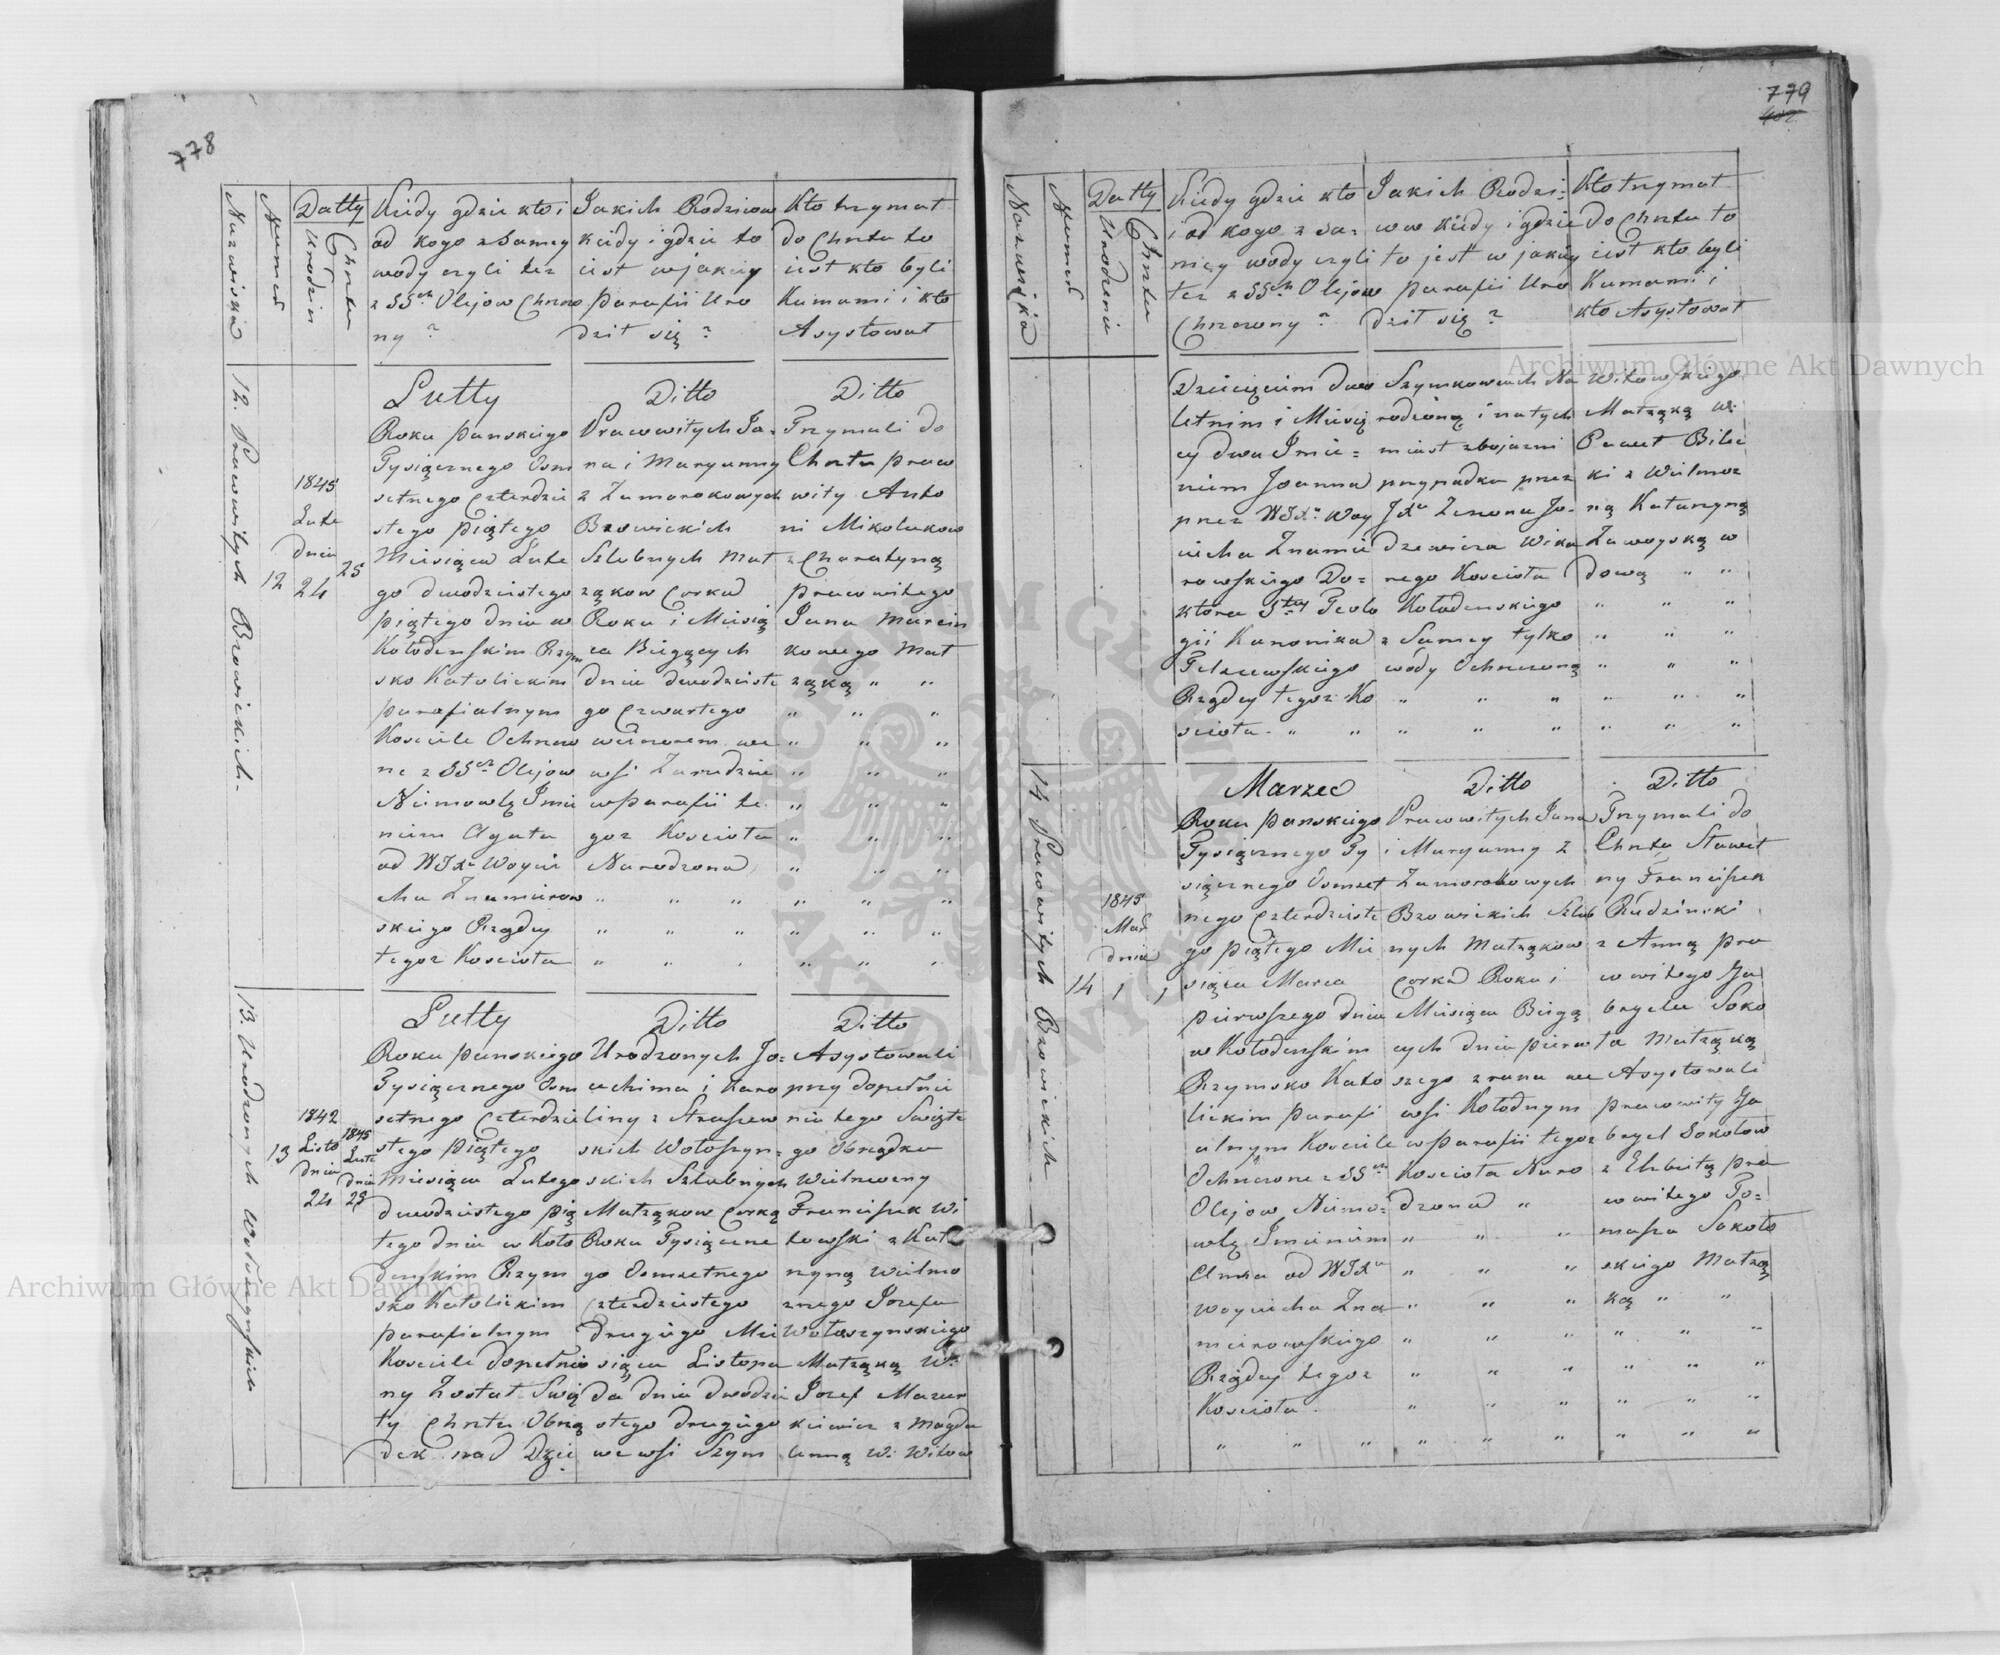 778
Nazwiska
Numer
Datty
Urodzin
Chrztu
Kiedy gdzie kto i
od kogo z Samey
wody czyli też
z SSch Olejow Chrzczo
ny?
Jakich Rodzicow
kiedy i gdzie to
iest w jakiey
Parafii Uro
dził się?
Kto trzymał
do Chrztu to
iest kto byli
Kumami i kto
Asystował
12. Pracowitych Bzowickich.
12
1845
Lute
dnia
24
25
Lutty
Roku Pańskiego
Tysiącznego Osm
setnego Czterdzie
stego piątego
Miesiąca Lute
go dwudziestego
piątego dnia w
Kołodenskim Rzym
sko Katolickim
parafialnym
Kosciele Ochrzczo
ne z SSch Olejow
Niemowlę Imie
niem Agata
od WJXa Woycie
cha Znamierow
skiego Rządcy
tegoz Kosciola
Ditto
Pracowitych Ja=
na i Maryanny
z Zamorokowych
Bzowickich
Szlubnych Mał
ząkow Corka
Roku i Miesią
ca Bieżących
dnia dwudzieste
go Czwartego
wieczorem we
wsi Zarudziu
w Parafii te
goz Kosciola
Narodzona
Ditto
Trzymali do
Chrztu praco
wity Anto
ni Mikolukow
z Charatyną
pracowitego
Jana Marcin
kowego Mał
ząką " "
13. Urodzonych Wołoszynskich
13
1842
Listo
dnia
22
1845
Lute
dnia
25
Lutty
Roku Pańskiego
Tysiącznego Osm
setnego Czterdzie
stego Piątego
Miesiąca Lutego
dwudziestego pią
tego dnia w Koło
denskim Rzym
sko Katolickim
parafialnym
Kosciele dopełnio
ny Został Swię
ty Chrztu Obrzą
dek nad Dzie
Ditto
Urodzonych Jo=
achima i Karo
liny z Straszew
skich Wołoszyn=
skich Szlubnych
Małżąkow Corką
Roku Tysiączne
go Osmsetnego
Czterdziestego
drugiego Mie
siąca Listopa
da dnia dwudzie
stego drugiego
we wsi Szym
Ditto
Asystowali
przy dopełnie
niu tego Swięte
go Obrządku
Wielmożny
Franciszek Wi
towski z Kat
rzyną Wielmo
żnego Jozefa
Wołoszynskiego
Małżąką W:
Jozef Mazur
kiewicz z Magda
leną W: Witow
779
Nazwiska
Numer
Datty
Urodzenia
Chrztu
Kiedy gdzie kto
i od kogo z Sa=
mey wody czyli
też z SSch Olejow
Chrzczony?
Jakich Rodzi=
cow kiedy i gdzie
to jest w jakiey
Parafii Uro
dził się?
Kto trzymał
do Chrztu to
iest kto byli
Kumami i
kto Asystował
Dziecięciem dwu
letnim i Miesię
cy dwa Imie=
niem Joanna
przez WJXa Woy
ciecha Znamie
rowskiego Do=
ktora Stey Teolo
gii Kanonika
Rządcy tegoz Ko
sciola. " "
Szymkowcach Na
rodzoną i natych
miast z bojazni
przypadku przez
JXa Zenona Jo=
dzewicza Wika
rego Kosciola
Kołodenskiego
z Samey tylko
wody Ochrzczoną
Witowskiego
Małżąką W:
Paweł Bile
ki z Wielmoz
ną Katarzyną
Zawoyską w
dową " "
14 Pracowitych Bzowickich
14
1845
Mar
dnia
1
1
Marzec
Roku Pańskiego
Tysiącznego Ty
siącznego Osmset
nego Czterdzieste
go piątego Mie
siąca Marca
pierwszego dnia
w Kołodenskim
Rzymsko Kato
lickim parafi
alnym Kosciele
Ochrzczone z SSch
Olejow Niemo=
wlę Imieniem
Anna od WJXa
Woyciecha Zna
mierowskiego
Rządcy tegoz
Kosciola.
Ditto
Pracowitych Jana
i Maryanny z
Zamorokowych
Bzowickich Szlub
nych Małżąkow
Corka Roku i
Miesiąca Bieżą
cych dnia pierw
szego z rana we
wsi Kołodnym
w Parafii tegoz
Kosciola Naro
dzona "
Ditto
Trzymali do
Chrztu Sławet
ny Franciszek
Rudzinski
z Anną pra
cowitego Ga
bryela Soko
ła Małżąką
Asystowali
pracowity Ga
bryel Sokołow
z Elzbietą pra
cowitego To=
masza Sokoło
skiego Małżą
ką " "
Archiwum Główne Akt Dawnych
Archiwum Główne Akt Dawnych
ARCHIWUM GŁÓWNE AKT DAWNYCH